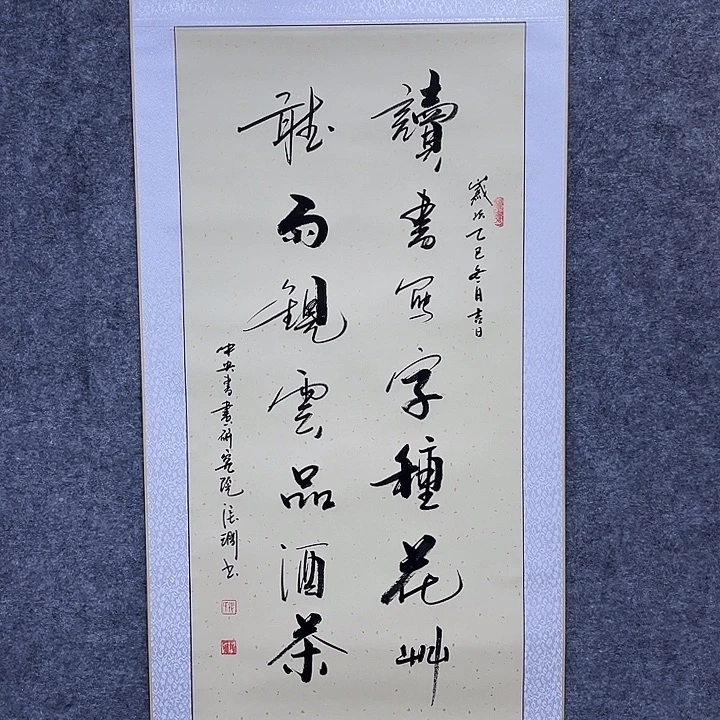 歲次乙巳冬月吉日
讀書寫字種花艸
聽雨觀雲品酒茶
中央書畫研究院 書